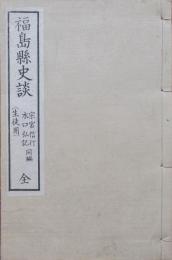 福島縣史談
宗宮信行
水口弘記
同編
(生徒用)
全